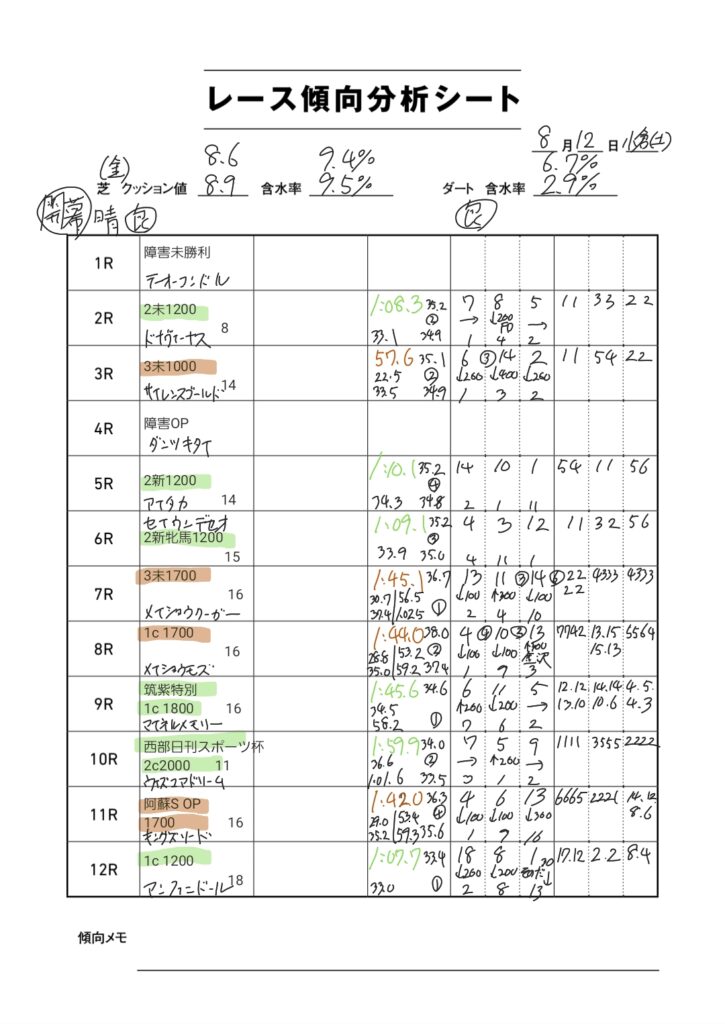 レース傾向分析シート
8月12日 小倉(土)
(金) 8.6 9.4% 6.7%
芝 クッション値 8.9 含水率 9.5% ダート 含水率 2.9%
開幕 晴 良 良
1R 障害未勝利
テーオーコンドル
2R 2未1200 8
1:08.3 35.2 ② 33.1 34.9
7 8 5
→ ↓200 →
1 4 2
11 33 22
3R 3未1000 14
サイレンスゴールド
57.6 35.1 22.5 ② 33.5 34.9
6 ③ 14 2
↓200 ↓400 ↓200
1 3 2
11 54 22
4R 障害OP
ダンツキタイ
5R 2新1200 14
アイタカ
1:10.1 35.2 ④ 34.3 34.8
14 10 1
2 1 11
54 11 56
セイウンデセオ
6R 2新牝馬1200 15
1:09.1 35.2 ③ 33.9 35.0
4 3 12
4 11 1
11 32 56
7R 3未1700 16
メイショウクーガー
1:45.1 36.7 30.7 56.5 37.4 1.02.5 ①
13 11 ③ 14 ⑥
↓100 ↑300 ↓100
2 4 10
22 22 4333 4333
8R 1c 1700 16
メイショウモズ
1:44.0 38.0 28.8 53.2 ② 35.0 59.2 37.4
4 ④ 10 ③ 13
↓100 ↓100 金沢
1 9 3
7742 13.15 15.13 5564
9R 筑紫特別
1c 1800 16
マイネルメモリー
1:45.6 34.6 34.5 58.2 ①
6 11 5
↑200 ↓200 →
7 6 2
12.12 13.10 14.14 10.6 4.5 4.3
10R 西部日刊スポーツ杯
2c2000 11
ウィズユアドリーム
1:59.9 34.0 36.6 ② 1:01.6 33.5
7 5 9
→ ↑200 →
1 2
1111 3555 2222
11R 阿蘇S OP
1700 16
キングズソード
1:42.0 36.3 29.0 53.4 ④ 35.2 59.3 35.6
4 6 13
↓100 ↓100 ↓300
1 9 16
6665 2221 14.12 8.6
12R 1c 1200 18
アンファンドール
1:07.7 33.4 33.0 ①
18 8 1
↓200 ↓200
2 8 13
17.12 2.2 8.4
傾向メモ